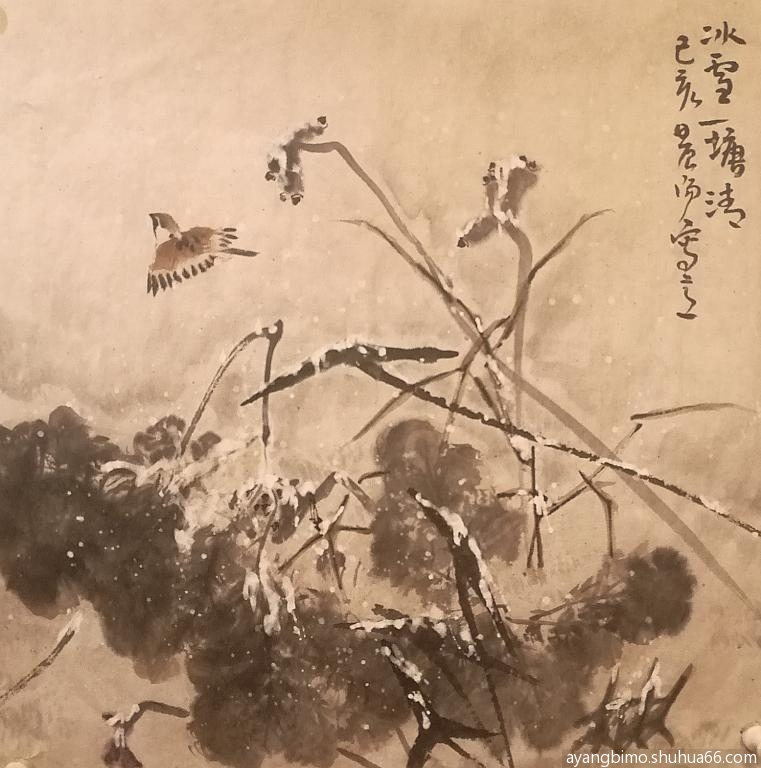 冰雪一塘清
己亥景师写之
ayangbimo.shuhua66.com